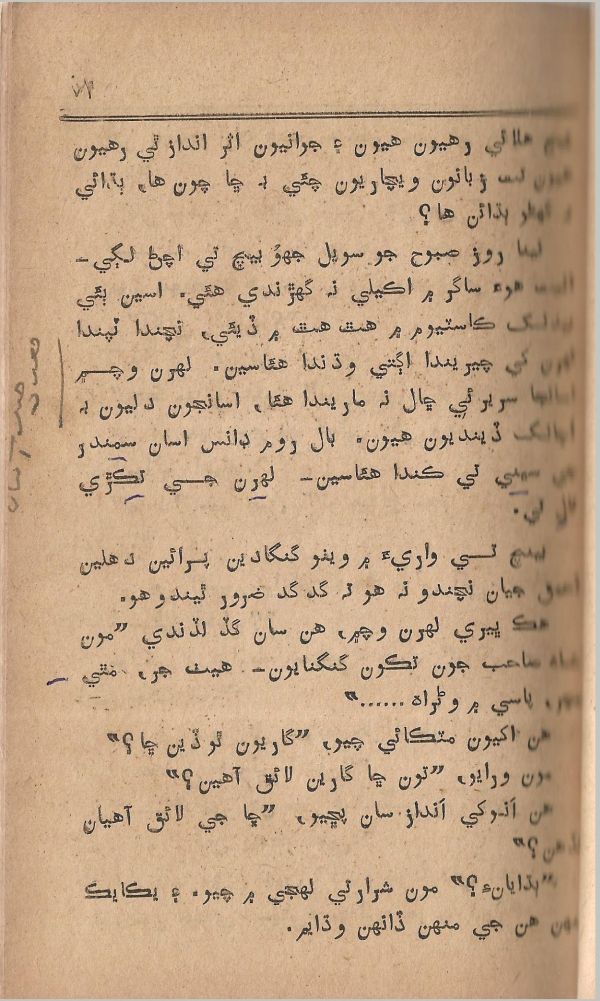 هلائي رهيون هيون ۽ جوانيون اثر انداز ٿي رهيون
زبانون ويچاريون چئي به ڇا چون ها، ٻڌائي
ٻڌائن ها؟
روز صبوح جو سويل جهوُ بيچ تي اچڻ لڳي-
هوءَ ساگر ۾ اڪيلي نہ گهڙندي هئي. اسين ٻئي
ڪاسٽيوم ۾ هٿ هٿ ۾ ڏيئي، نچندا ٽپندا
کي چيريندا اڳتي وڌندا هئاسين. لهرن وچ ۾
سريرئي ڇال نہ ماريندا هئا، اسانجون دليون بہ
ڏينديون هيون. بال روم ڊانس اسان سمنڊر
جي سيني تي ڪندا هئاسين- لهرن جي ٿڪڙي
تال تي.
بيچ تي واريءَ ۾ ويٺو گنگادين پرائين دهلين
جيان نچندو نہ هو تہ گدگد ضرور ٿيندو هو.
هڪ ڀيري لهرن وچ ۾، هن سان گڏ لڏندي ”مون
شاه صاحب جون تڪون گنگنايون- هيٺ جر، مٿي
پاسي ۾ وڻراه ......“
هن اکيون مٽڪائي چيو، ”گاريون ٿو ڏين ڇا؟“
مون ورايو، ”تون ڇا گارين لائق آهين؟“
هن اَنوکي اَنداز سان پڇيو، ”ڇا جي لائق آهيان
”ٻڌايانءِ؟“ مون شرارتي لهجي ۾ چيو. ۽ يڪايڪ
منهن هن جي منهن ڏانهن وڌايم.